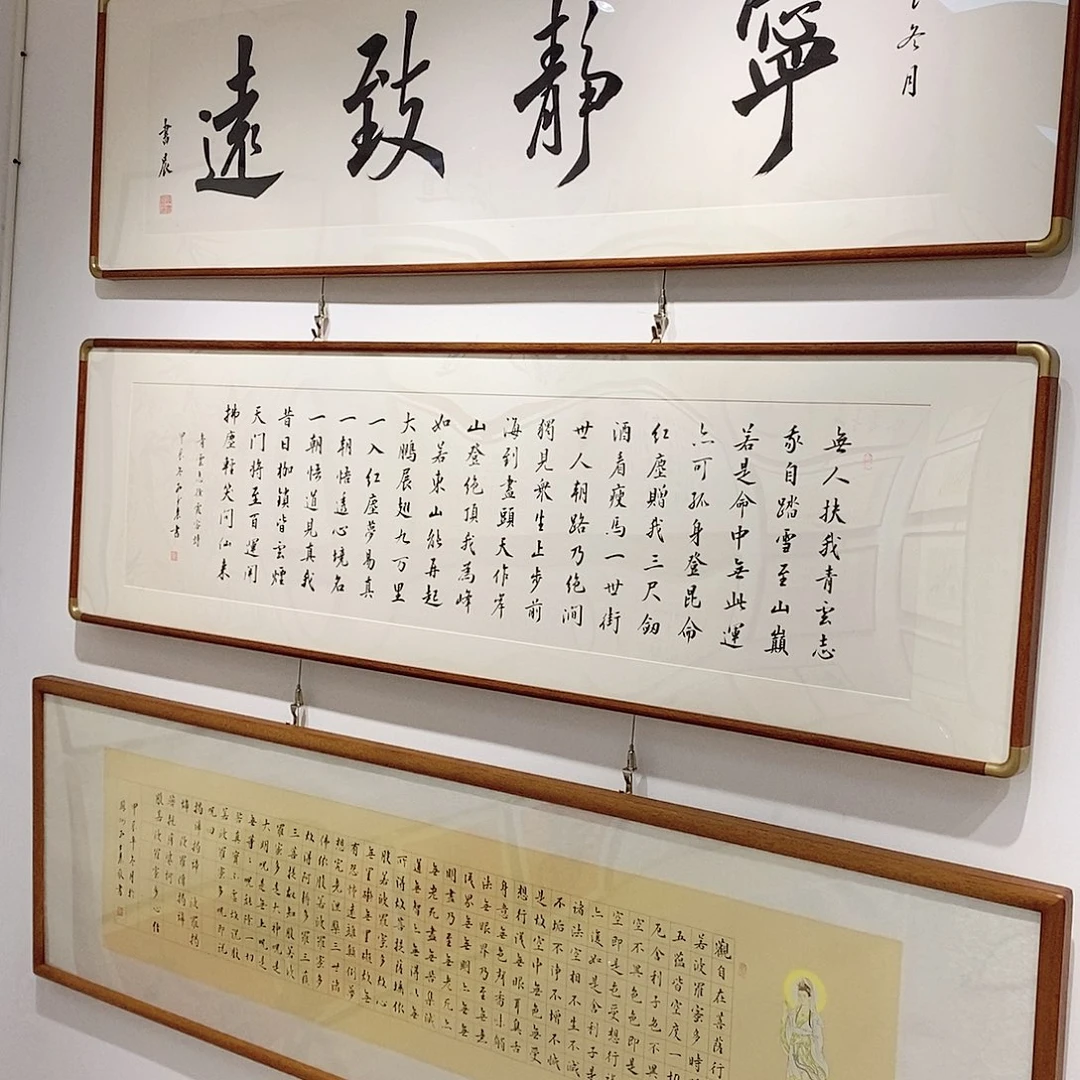 冬月
寧靜致遠
書晨
無人扶我青雲志
我自踏雪至山巔
若是命中無此運
亦可孤身登昆侖
紅塵贈我三尺劍
酒看瘦馬一世街
世人朝路乃絕澗
獨見眾生止步前
海到盡頭天作岸
山登絕頂我為峰
如若東山能再起
大鵬展翅九万里
一入紅塵夢易真
一朝悟透心境名
一朝悟道見真我
昔日枷鎖皆雲煙
天门將至百運開
拂塵輕笑問仙來
青雲志
書
觀自在菩薩行
若波羅蜜多時
五蘊皆空度一切
厄舍利子色不異
空不異色色即是
空即是色受想行識
亦復如是舍利子是
諸法空相不生不滅
不垢不淨不增不減
是故空中無色無受
想行識無眼耳鼻舌
身意無色聲香味觸
法無眼界乃至無意
識界無無明亦無無
明盡乃至無老死亦
無老死盡無苦集滅
道無智亦無得以無
所得故菩提薩埵依
般若波羅蜜多故心
無罣礙無罣礙故無
有恐怖遠離顛倒夢
想究竟涅槃三世諸
佛依般若波羅蜜多
故得阿耨多羅三藐
三菩提故知般若波
羅蜜多是大神咒是
大明咒是無上咒是
無等等咒能除一切
苦真實不虛故說般
若波羅蜜多咒即說
咒曰
揭諦揭諦 波羅揭
諦 波羅僧揭諦
菩提薩婆訶
般若波羅蜜多心經
甲辰年冬月於